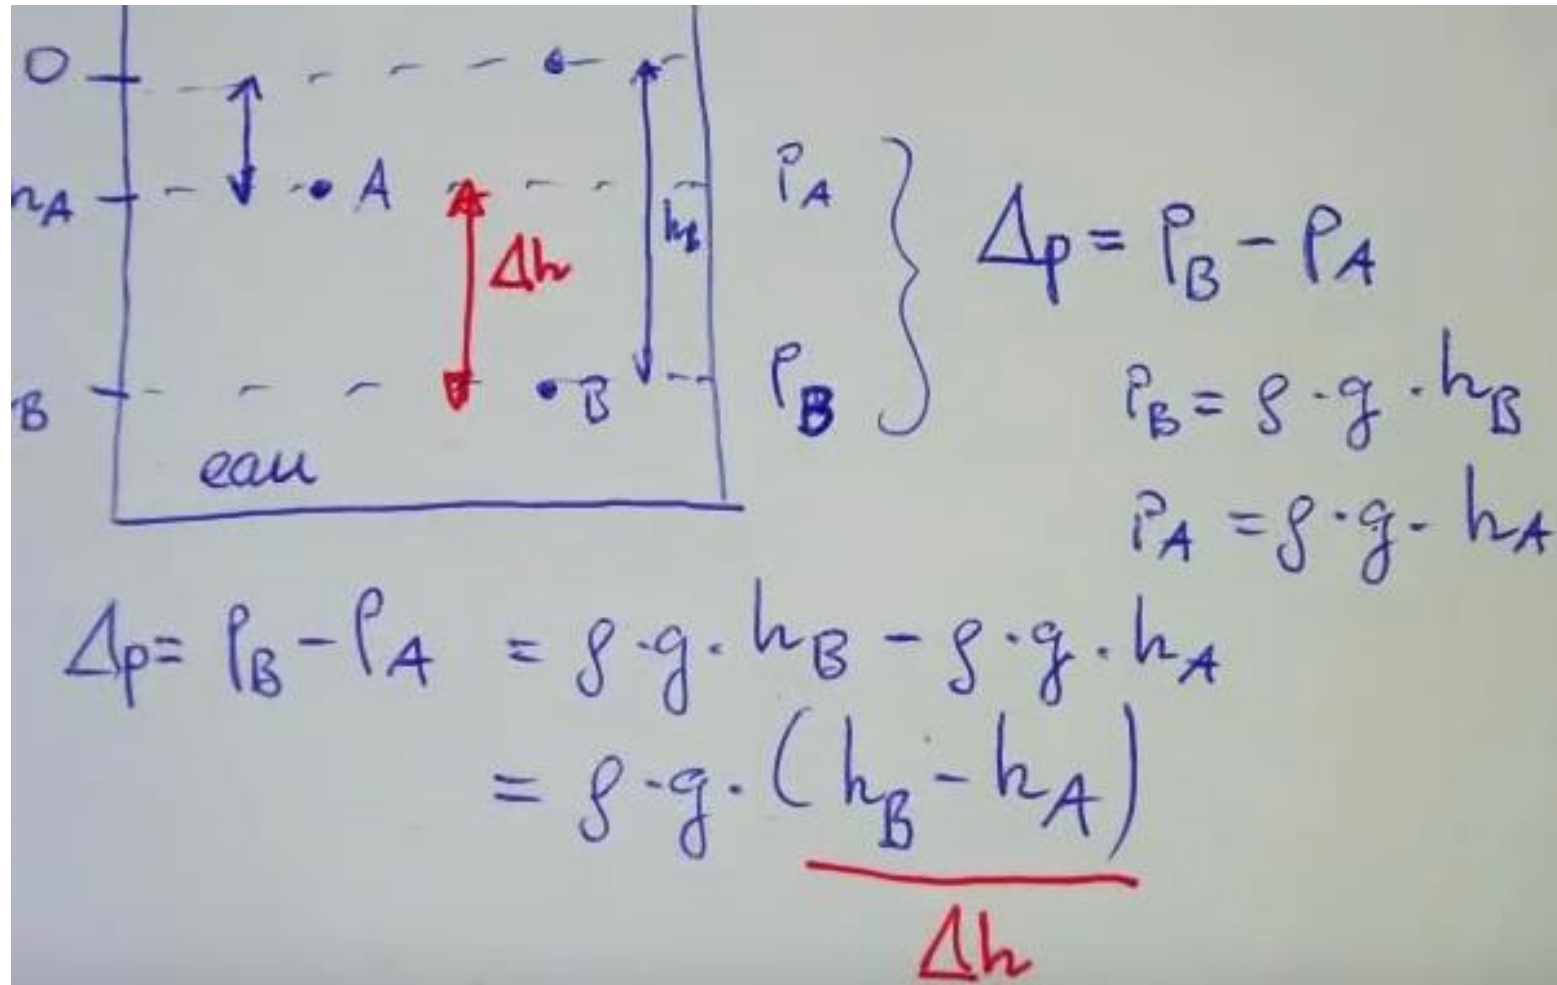 0
hA
A
Δh
hB
B
B
eau
pA
pB
Δp = pB - pA
pB = ρ · g · hB
pA = ρ · g · hA
Δp = pB - pA = ρ · g · hB - ρ · g · hA
= ρ · g · (hB - hA)
Δh